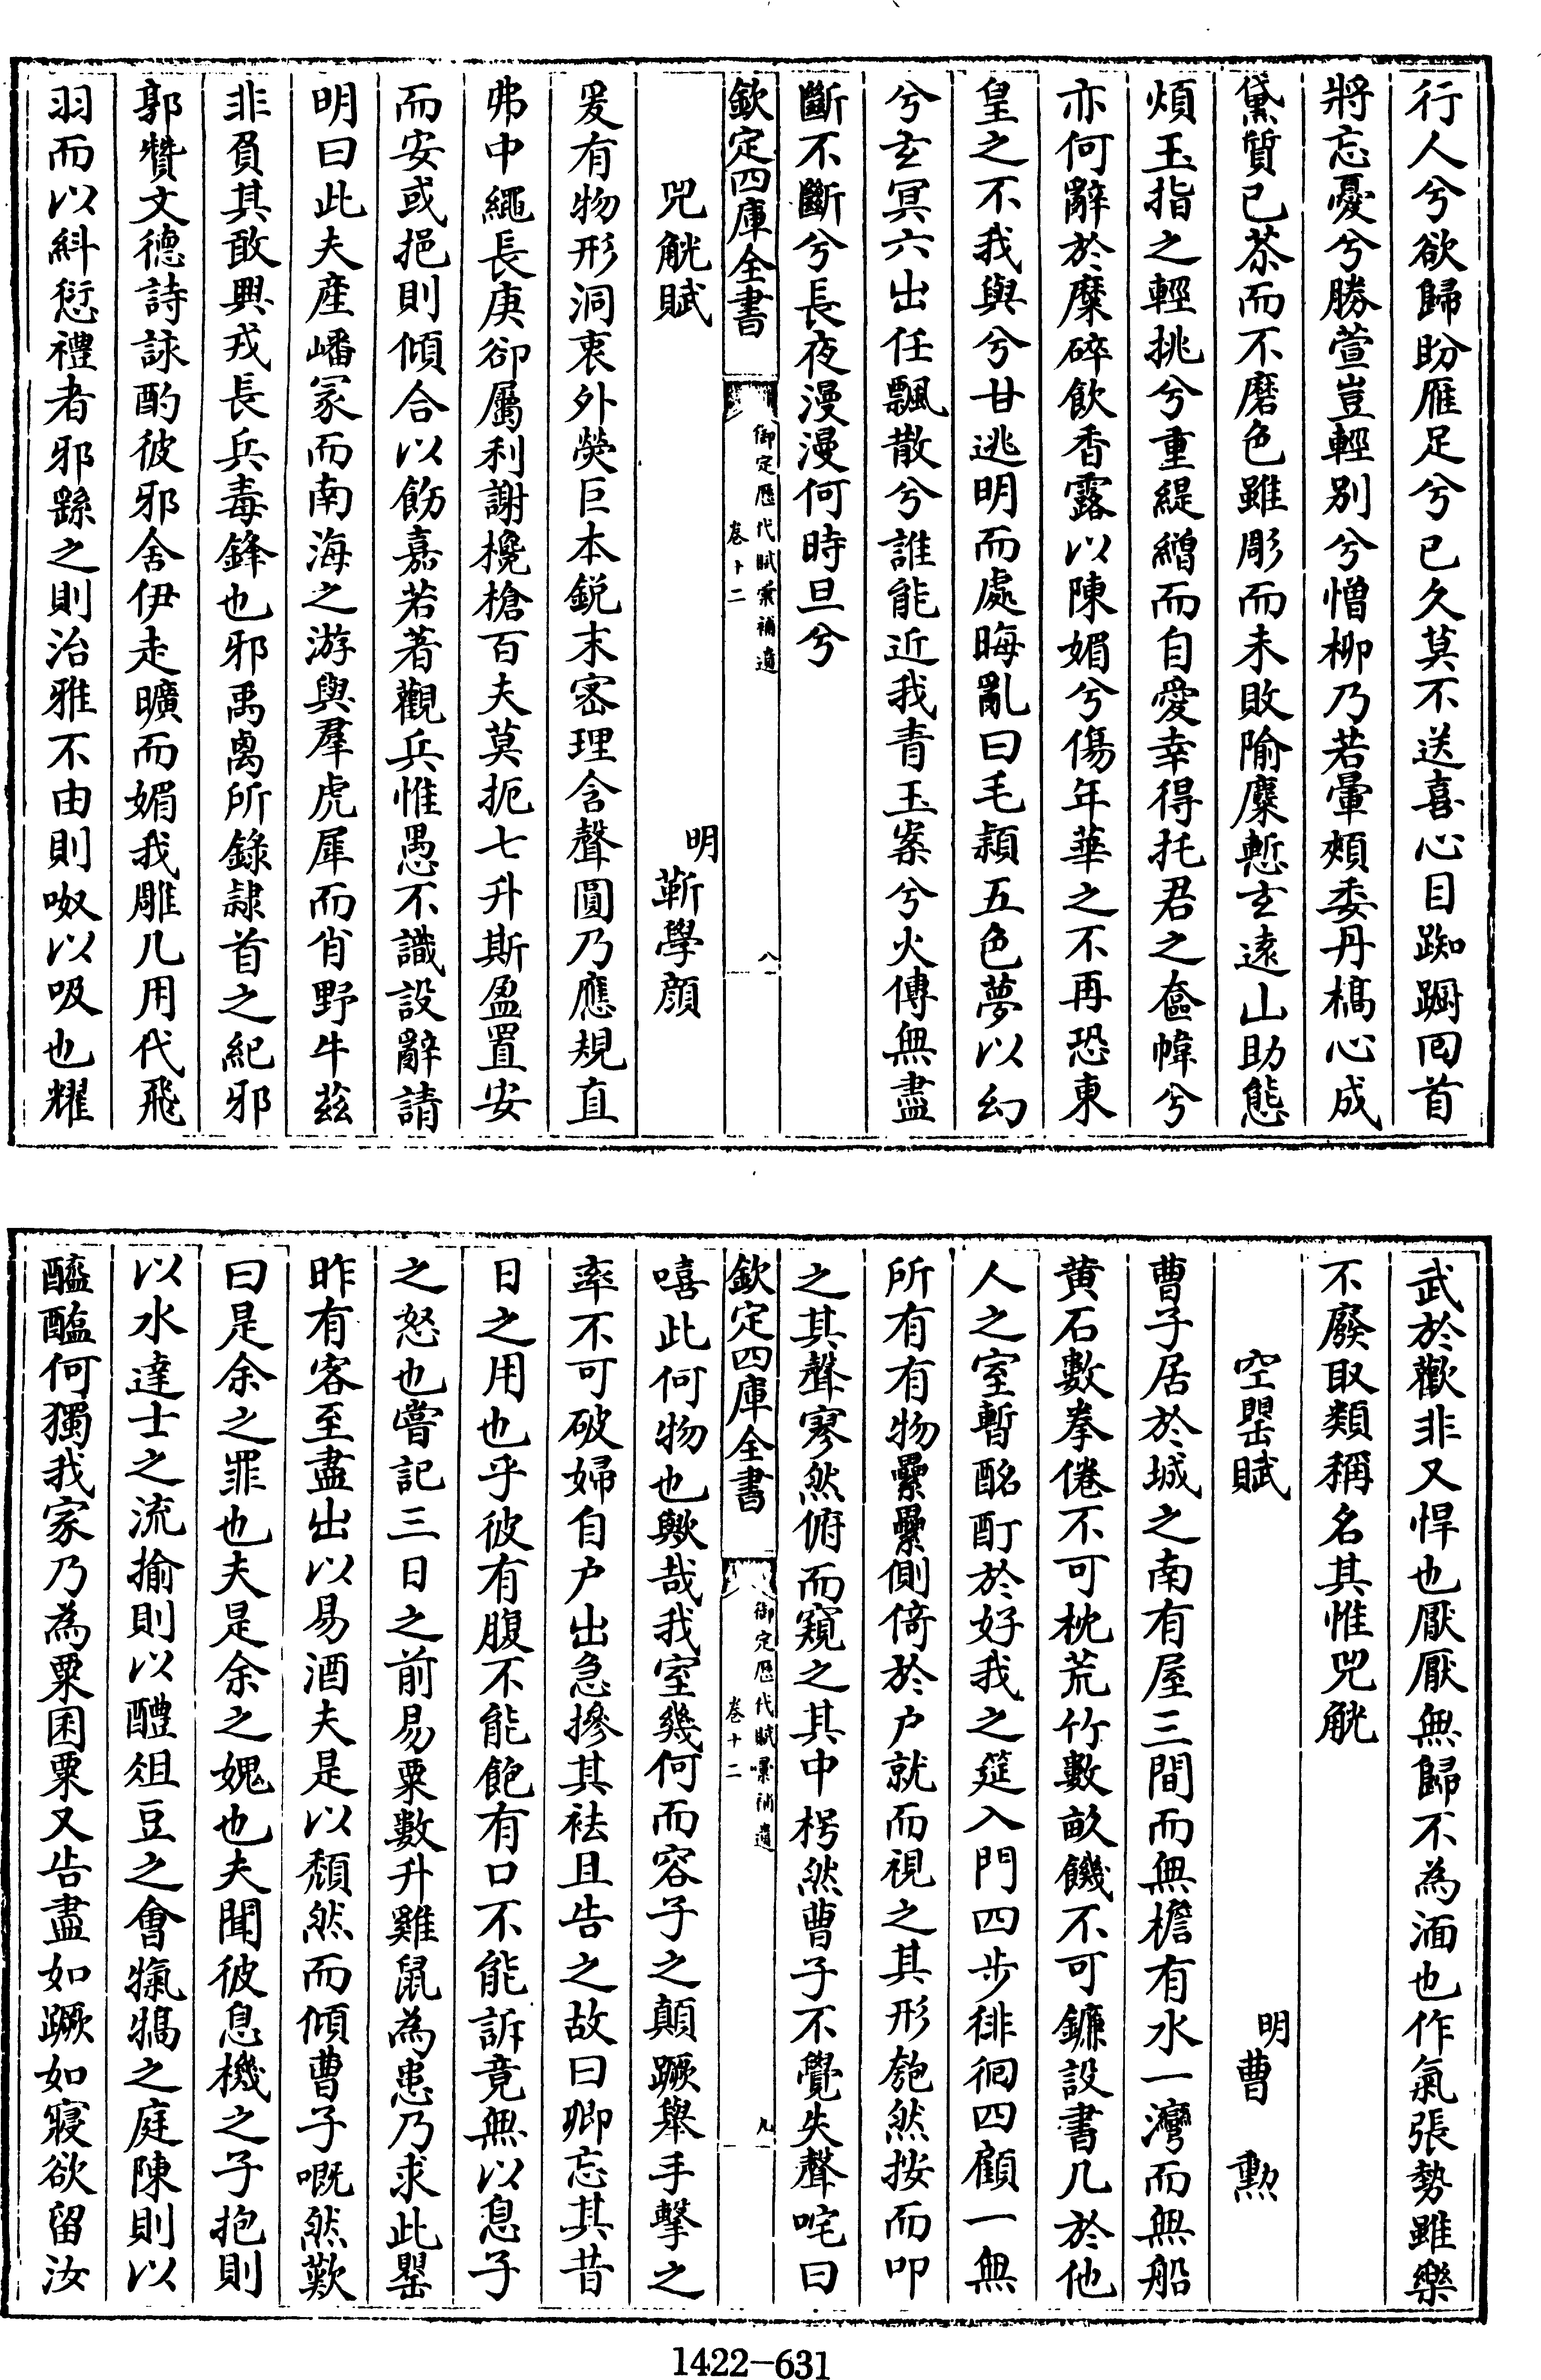 行人兮欲歸盼雁足兮已久莫不送喜心目踟蹰囘首
將忘憂兮勝萱豈輕别兮憎柳乃若暈頰委丹槁心成
黛質已茶而不磨色雖彫而未敗隃麋慙玄遠山助態
煩玉指之輕挑兮重緹繒而自愛幸得托君之奩幃兮
亦何辭於糜碎飲香露以陳媚兮傷年華之不再恐東
皇之不我與兮甘逃明而處晦亂曰毛穎五色夢以幻
兮玄冥六出任飄散兮誰能近我青玉案兮火傳無盡
斷不斷兮長夜漫漫何時旦兮
欽定四庫全書
御定歷代賦彙補遺
卷十二
八
兕觥賦
明
靳學顔
爰有物形洞衷外熒巨本鋭末宻理含聲圓乃應規直
弗中繩長庚卻屬利謝攙槍百夫莫扼七升斯盈置安
而安或挹則傾合以飭嘉若著觀兵惟愚不識設辭請
明曰此夫產嶓冢而南海之游與羣虎犀而肖野牛茲
非負其敢興戎長兵毒鋒也邪禹卨所錄隷首之紀邪
郭贊文德詩詠酌彼邪舍伊走曠而媚我雕几用代飛
羽而以糾愆禮者邪繇之則治雅不由則呶以吸也耀
武於歡非又悍也厭厭無歸不為湎也作氣張勢雖樂
不廢取類稱名其惟兕觥
空罌賦
明
曹勲
曹子居於城之南有屋三間而無檐有水一灣而無船
黄石數拳倦不可枕荒竹數畝饑不可鐮設書几於他
人之室暫酩酊於好我之筵入門四步徘徊四顧一無
所有有物纍纍側倚於户就而視之其形匏然按而叩
之其聲寥然俯而窺之其中枵然曹子不覺失聲咤曰
欽定四庫全書
御定歷代賦彙補遺
卷十二
九
嘻此何物也歟哉我室幾何而容子之顛蹶舉手擊之
率不可破婦自户出急摻其袪且告之故曰卿忘其昔
日之用也乎彼有腹不能飽有口不能訴竟無以息子
之怒也嘗記三日之前易粟數升雞鼠為患乃求此罌
昨有客至盡出以易酒夫是以頽然而傾曹子嘅然歎
曰是余之罪也夫是余之媿也夫聞彼息機之子抱則
以水達士之流揄則以醴俎豆之會犠犧之庭陳則以
醯醢何獨我家乃為粟囷粟又告盡如蹶如寢欲留汝
1422-631